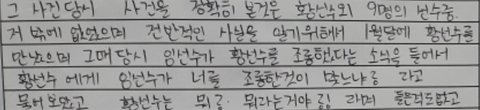 그 사건당시 사건을 정확히 본것은 황선수외 9명의 선수중.
거 밖에 없었으며 전반적인 사실을 알기위해서 1월달에 황선수를
만났으며 그때당시 임선수가 황선수를 조롱했다는 소식을 들어서
황선수 에게 임선수가 너를 조롱한것이 맞느냐 라고
물어보았고 황선수는 뭐 뭐라는거야 라며